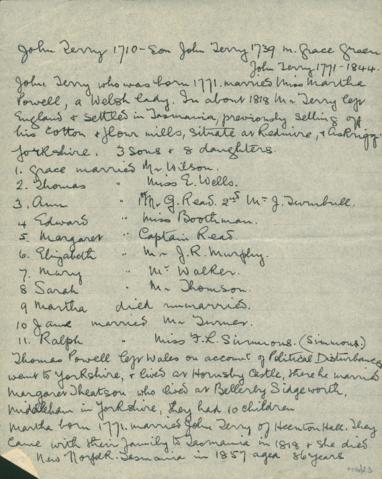 John Terry 1710 - Son John Terry 1739 m. Grace Green
John Terry 1771-1844.
John Terry who was born 1771. married Miss Martha
Powell, a Welsh lady. In about 1818 Mr Terry left
England & settled in Tasmania, previously selling off
his Cotton & flour mills, situate at Redmire, & Askrigg
Yorkshire. 3 Sons & 8 daughters.
1. Grace married Mr Wilson.
2. Thomas " Miss E. Wells.
3. Ann " 1st Mr G. Read. 2nd Mr J. Turnbull.
4 Edward " Miss Boothman.
5. Margaret " Captain Read.
6. Elizabeth " Mr J.R. Murphy.
7. Mary " Mr Walker.
8 Sarah " Mr Thomson.
9 Martha died unmarried.
10 Jane married Mr Turner.
11. Ralph " Miss F.L. Simmons. (Simmons)
Thomas Powell left Wales on account of Political Disturbances
went to Yorkshire, & lived at Hornsby Castle, Here he married
Margaret Theatson who lived at Bellerby Sidgeworth,
Middleham in Yorkshire, they had 10 children
Martha born 1771. married John Terry of Hernton Hall. They
came with their family to Tasmania in 1818 & she died
New Norfolk. Tasmania in 1857 aged 86 years